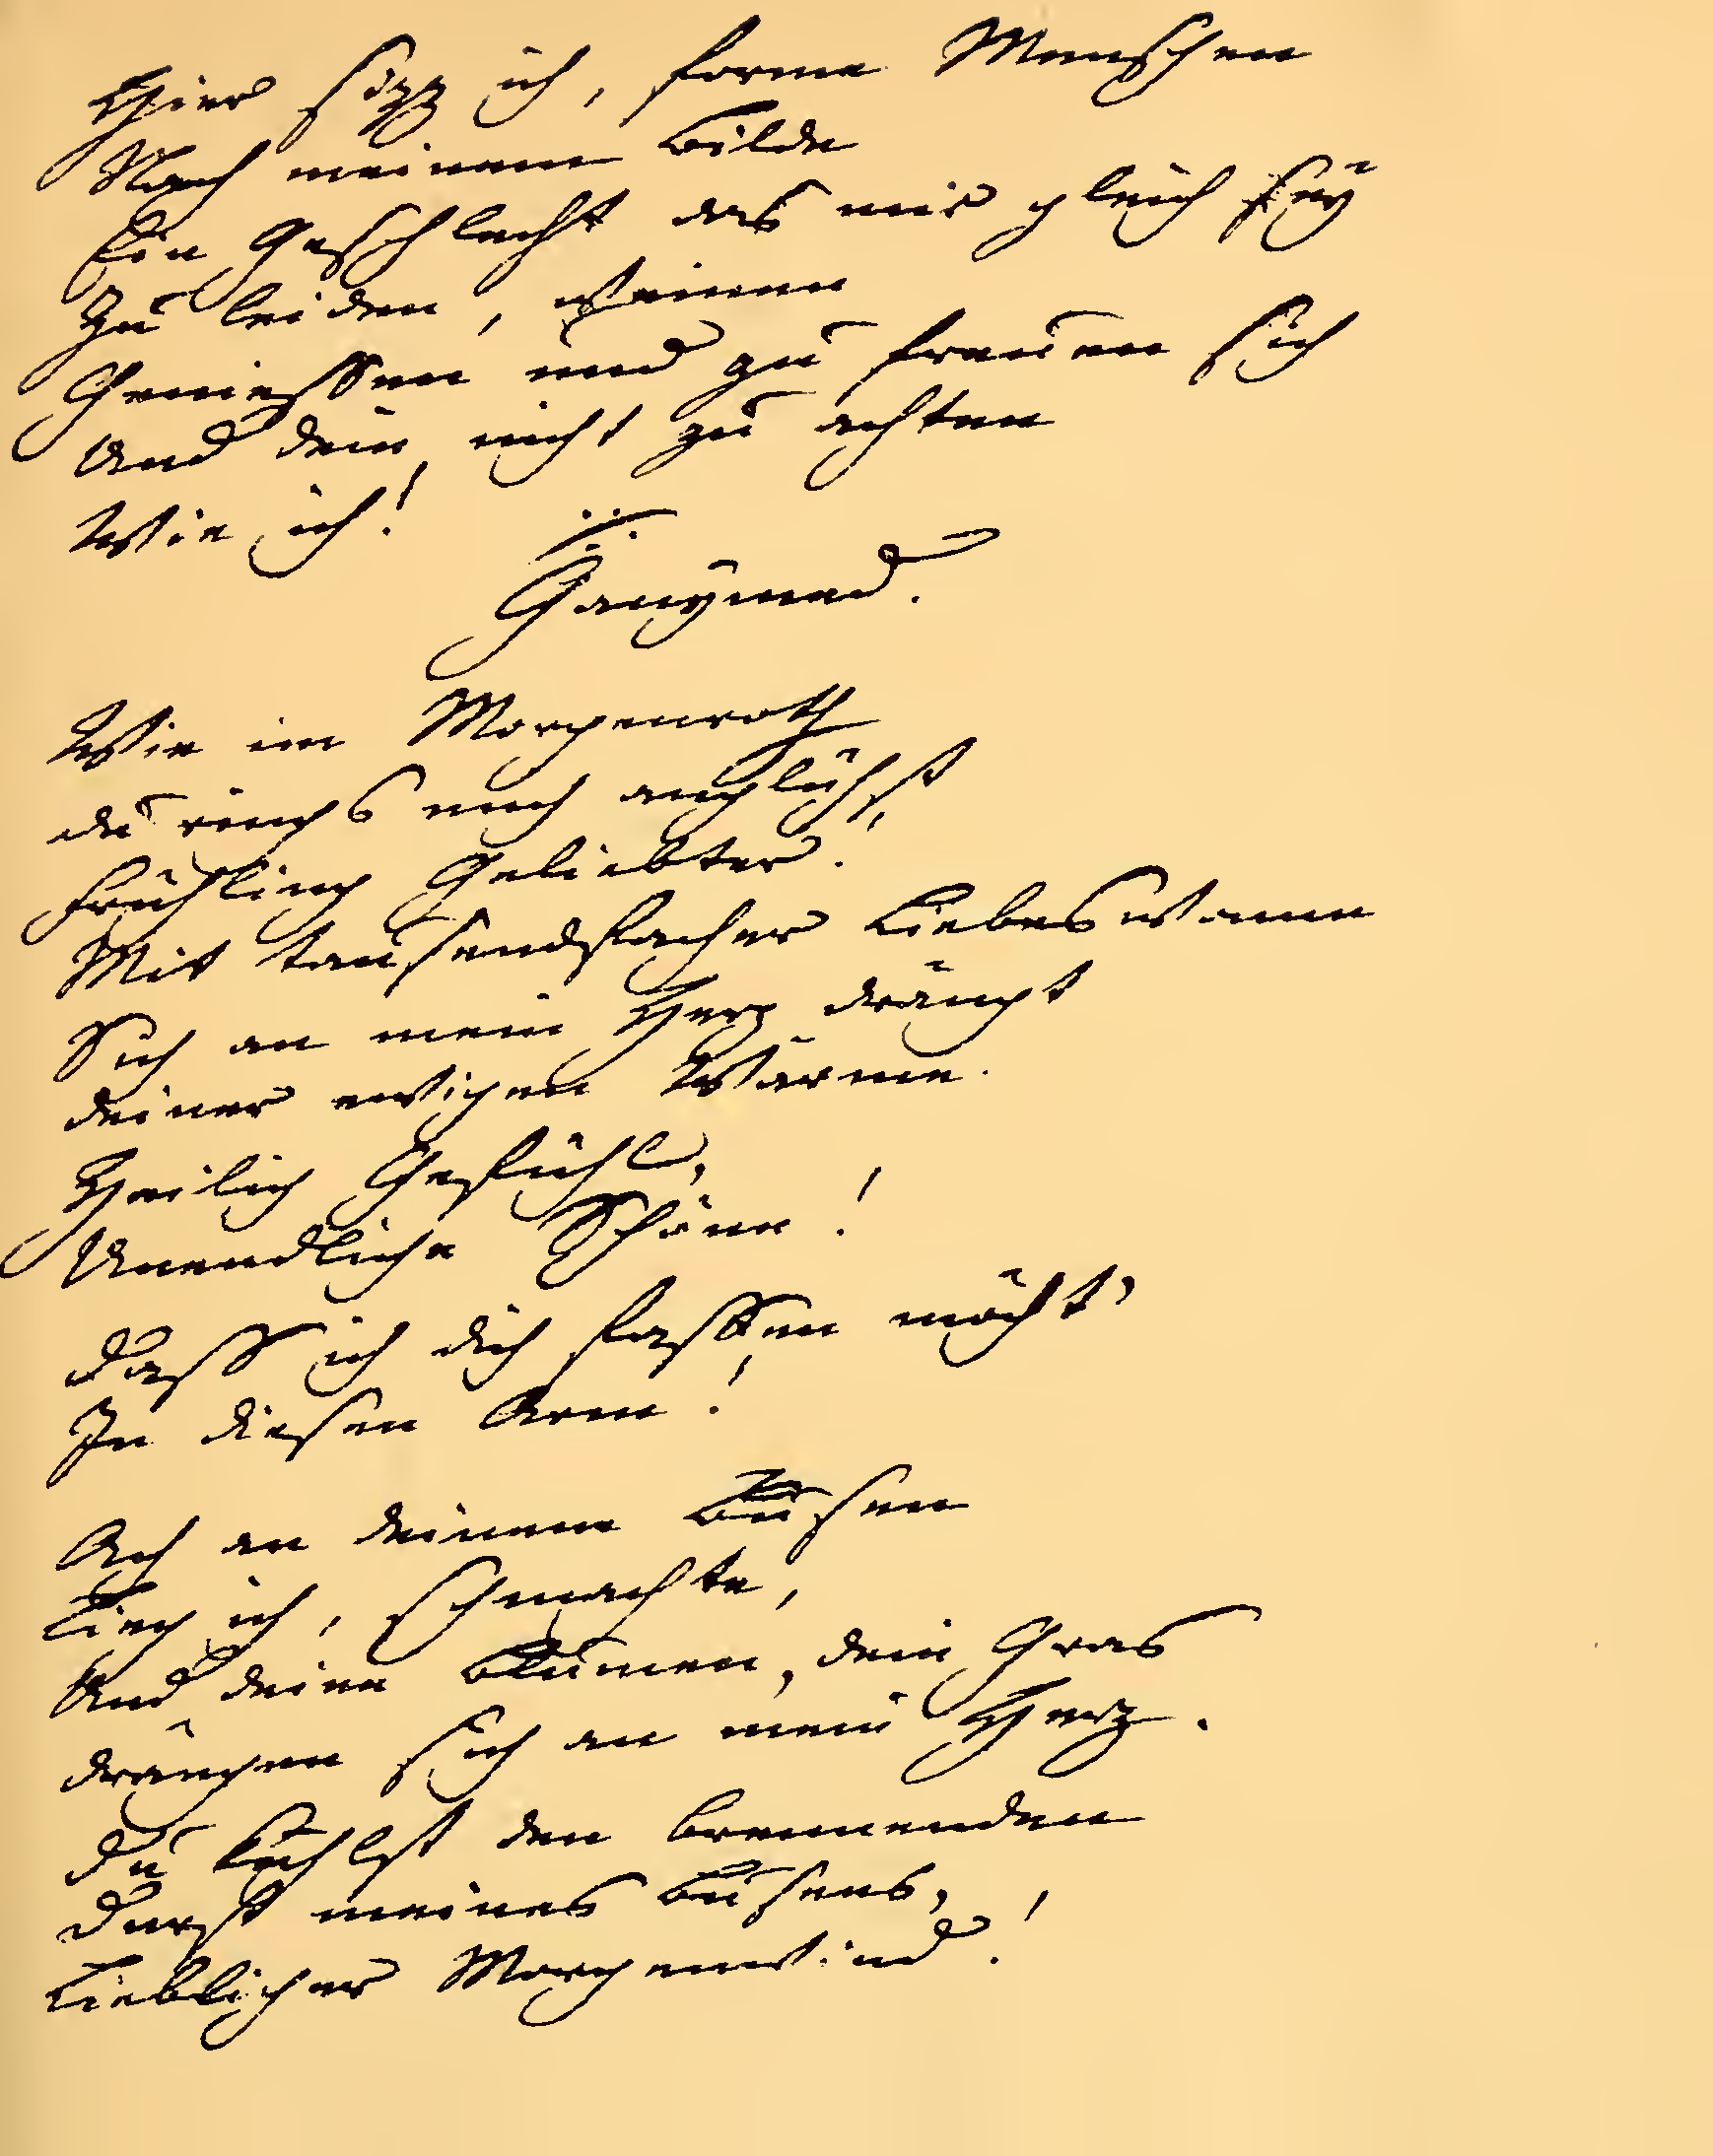 Hier sizz ich, forme Menschen
Nach meinem Bilde
Ein Geschlecht das mir gleich sey
Zu leiden, weinen
Geniessen und zu freuen sich
Und dein nicht zu achten
Wie ich!
Ganymed.
Wie im Morgenroth
du rings mich anglühst,
Frühling Geliebter!
Mit tausendfacher Liebeswonne
Sich an mein Herz drängt
deiner ewigen Wärme.
Heilig Gefühl,
Unendliche Schöne!
dass ich dich fassen möcht'
In diesen Arm!
Ach an deinem Busen
Lieg ich, schmachte,
Und deine Blumen, dein Gras
drängen sich an mein Herz.
du kühlst den brennenden
durst meines Busens,
Lieblicher Morgenwind!